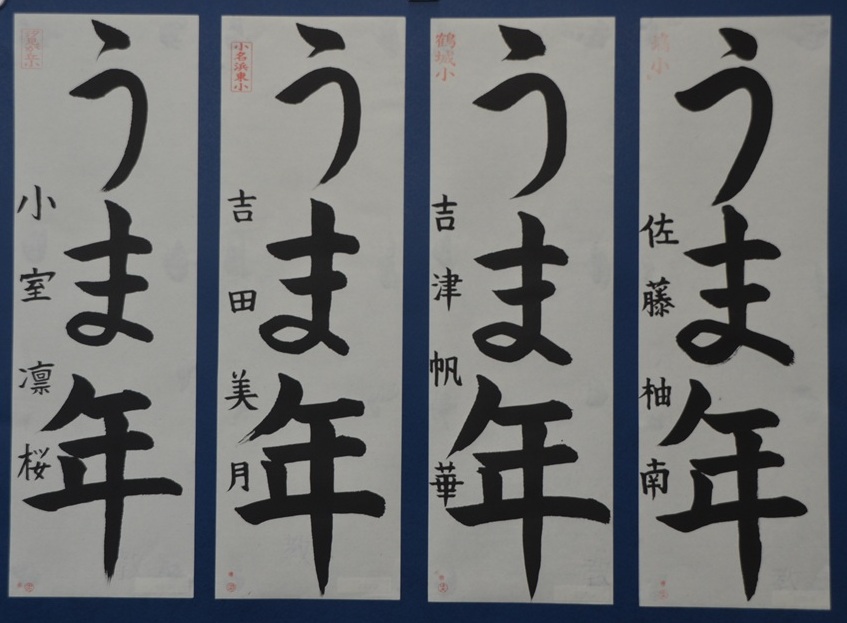 うま年
佐藤柚南
鶴城小
うま年
吉津帆華
小名浜東小
うま年
吉田美月
うま年
小室凛桜